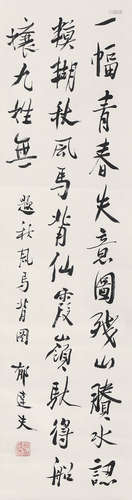 一幅青春失意圖殘山賸水認
模糊秋風馬背仙霞嶺耽得船
孃九姓無
題秋風馬背圖 郁達夫